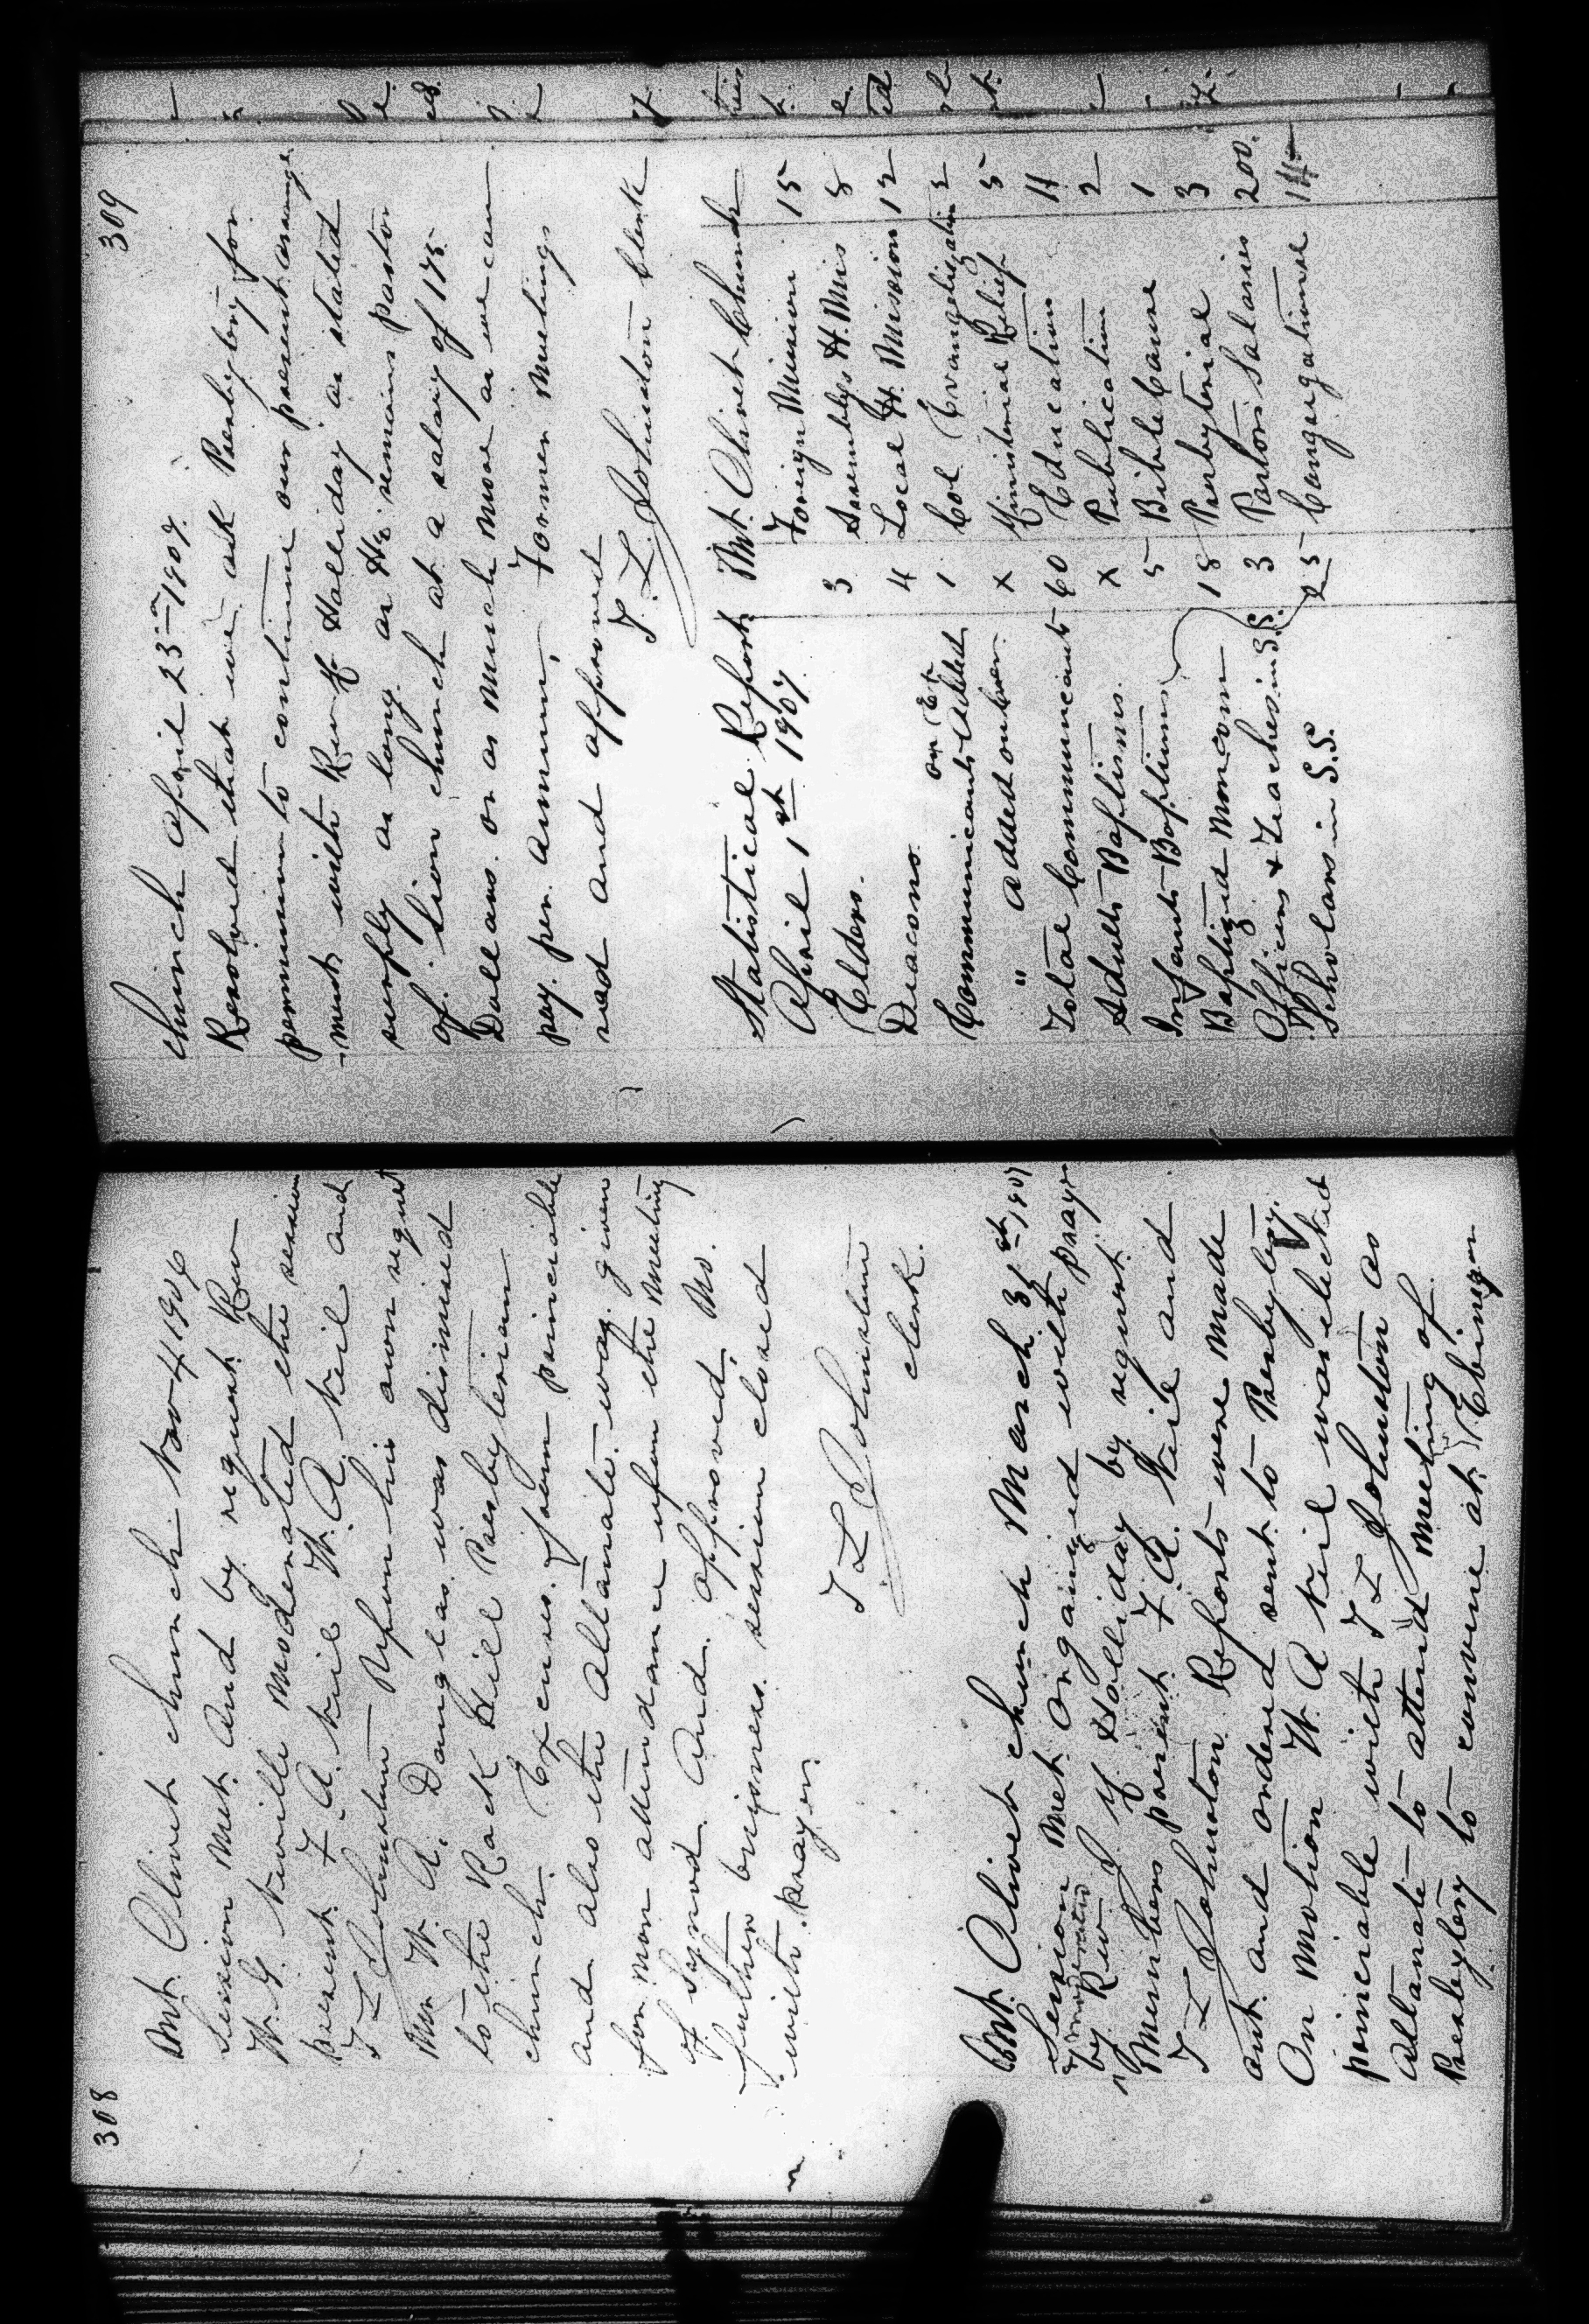 308
Mt. Olivet church Nov 4 1906
Session met and by request Rev
W. G. Neville moderated the session
present F A Neil W. A Neil and
T L Johnston Upon his own request
Mr W. A. Douglas was dismissed
to the Rock Hill Presbyterian
church. Excuses from principle
and also the Alternate was given
for non attendance upon the meeting
of Synod and approved, No
further business session closed
with prayer.
T L Johnston
clerk.
Mt. Olivet church March 31st 1907
Session met organized with prayer
& moderated
by Rev J H Holliday by request
Members present F A Neil and
T L Johnston Reports were made
out and ordered sent to Presbytery.
On motion W A Neil was elected
principle with T L Johnston as
Alternate to attend meeting of
Presbytery to convene at Ebinezer
309
church April 23rd 1907.
Resolved that we ask Presbytery for
permission to continue our present arrange
-ment with Rev H Holliday as stated
supply as long as He remains pastor
of Zion church at a salary of 175
Dollars or as much more as we can
pay per annum, Former meetings
read and approved
T. L. Johnston Clerk
Statistical Report Mt. Olivet Church
April 1st 1907.
Elders. 3 Foreign Mission 15
Deacons. 4 Assemblys H. Mis 8
Communicants Added on Ex 1 Local H. Mission 12
" added on Cer. x Col Evangelization 2
Total Communicants 60 Ministerial Relief 5
Adults Baptisms x Education 4
Infants Baptisms 5 Publication 2
Baptized Noncom 18 Bible Cause 1
Officers & Teaches in S.S. 3 Presbyterial 3
Scholars in S.S. 25 Pastors Salaries 200.
Congregational 14